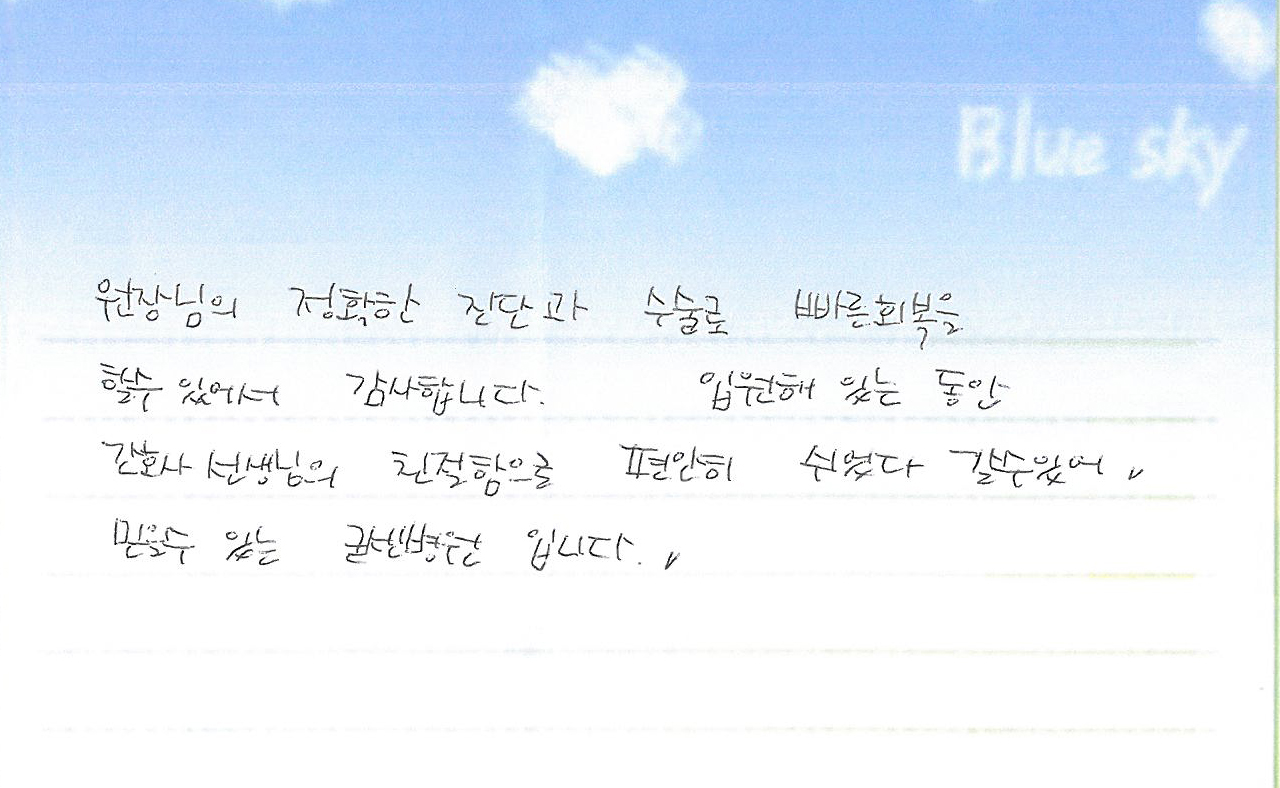 Blue sky
원장님의 정확한 진단과 수술로 빠른회복을
할수 있어서 감사합니다. 입원해 있는 동안
간호사 선생님의 친절함으로 편안히 쉬었다 갈수있어
믿을수 있는 굳센병원 입니다.